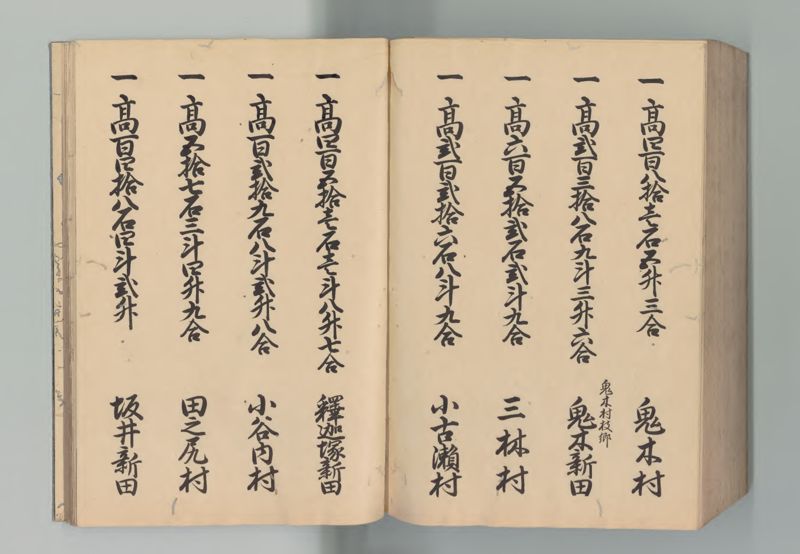 一 高四百八拾壱石五升三合 鬼木村
鬼木村枝郷
一 高弐百三拾八石九斗三升六合 鬼木新田
一 高六百五拾弐石弐斗九合 三林村
一 高弐百弐拾六石八斗九合 小古瀬村
一 高四百五拾壱石壱斗八升七合 釋迦塚新田
一 高百弐拾九石八斗弐升八合 小谷内村
一 高五拾七石三斗四升九合 田之尻村
一 高百四拾八石四斗弐升 坂井新田